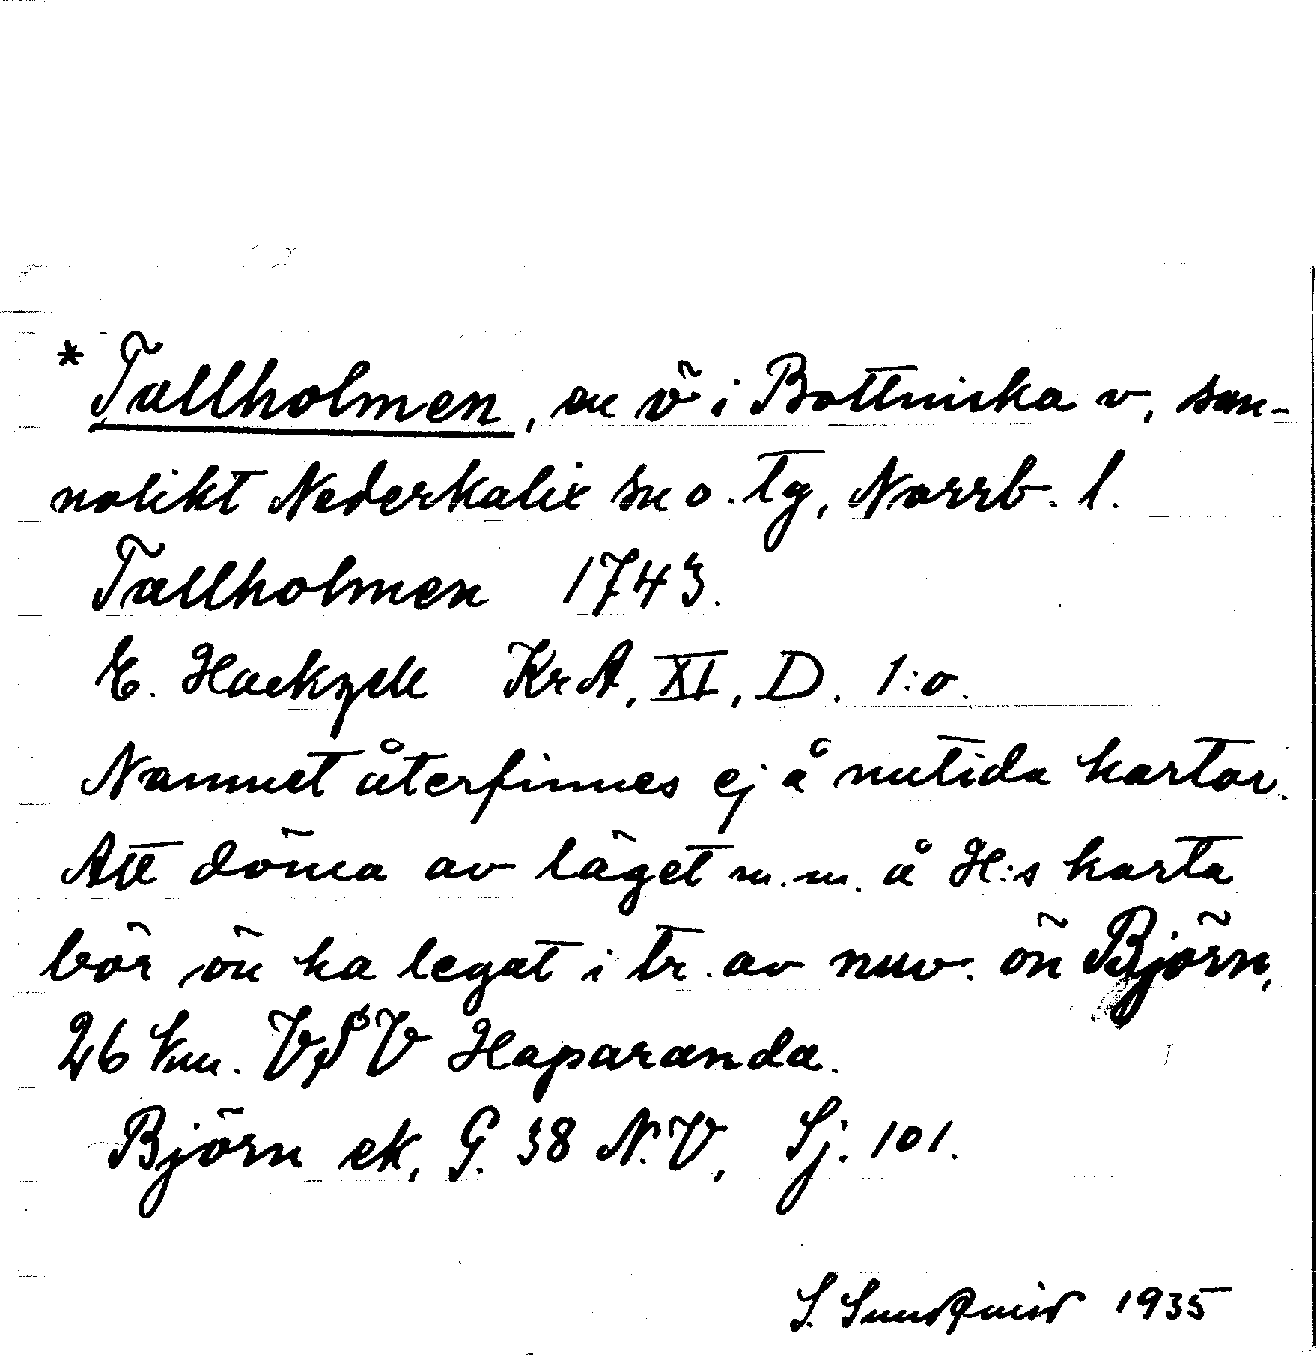 *Tallholmen, en ö i Bottniska v, san-
nolikt Nederkalix sn o. tg, Norrb. l.
Tallholmen 1743.
E. Hackzell KrA, XI, D. 1:o.
Namnet återfinnes ej å nutida kartor.
Att döma av läget m.m. å H:s karta
bör ön ha legat i tr. av nuv. ön Björn,
26 km. VSV Haparanda.
Björn ek, G. 38 N.V, Sj. 101.
S. Sundqvist 1935